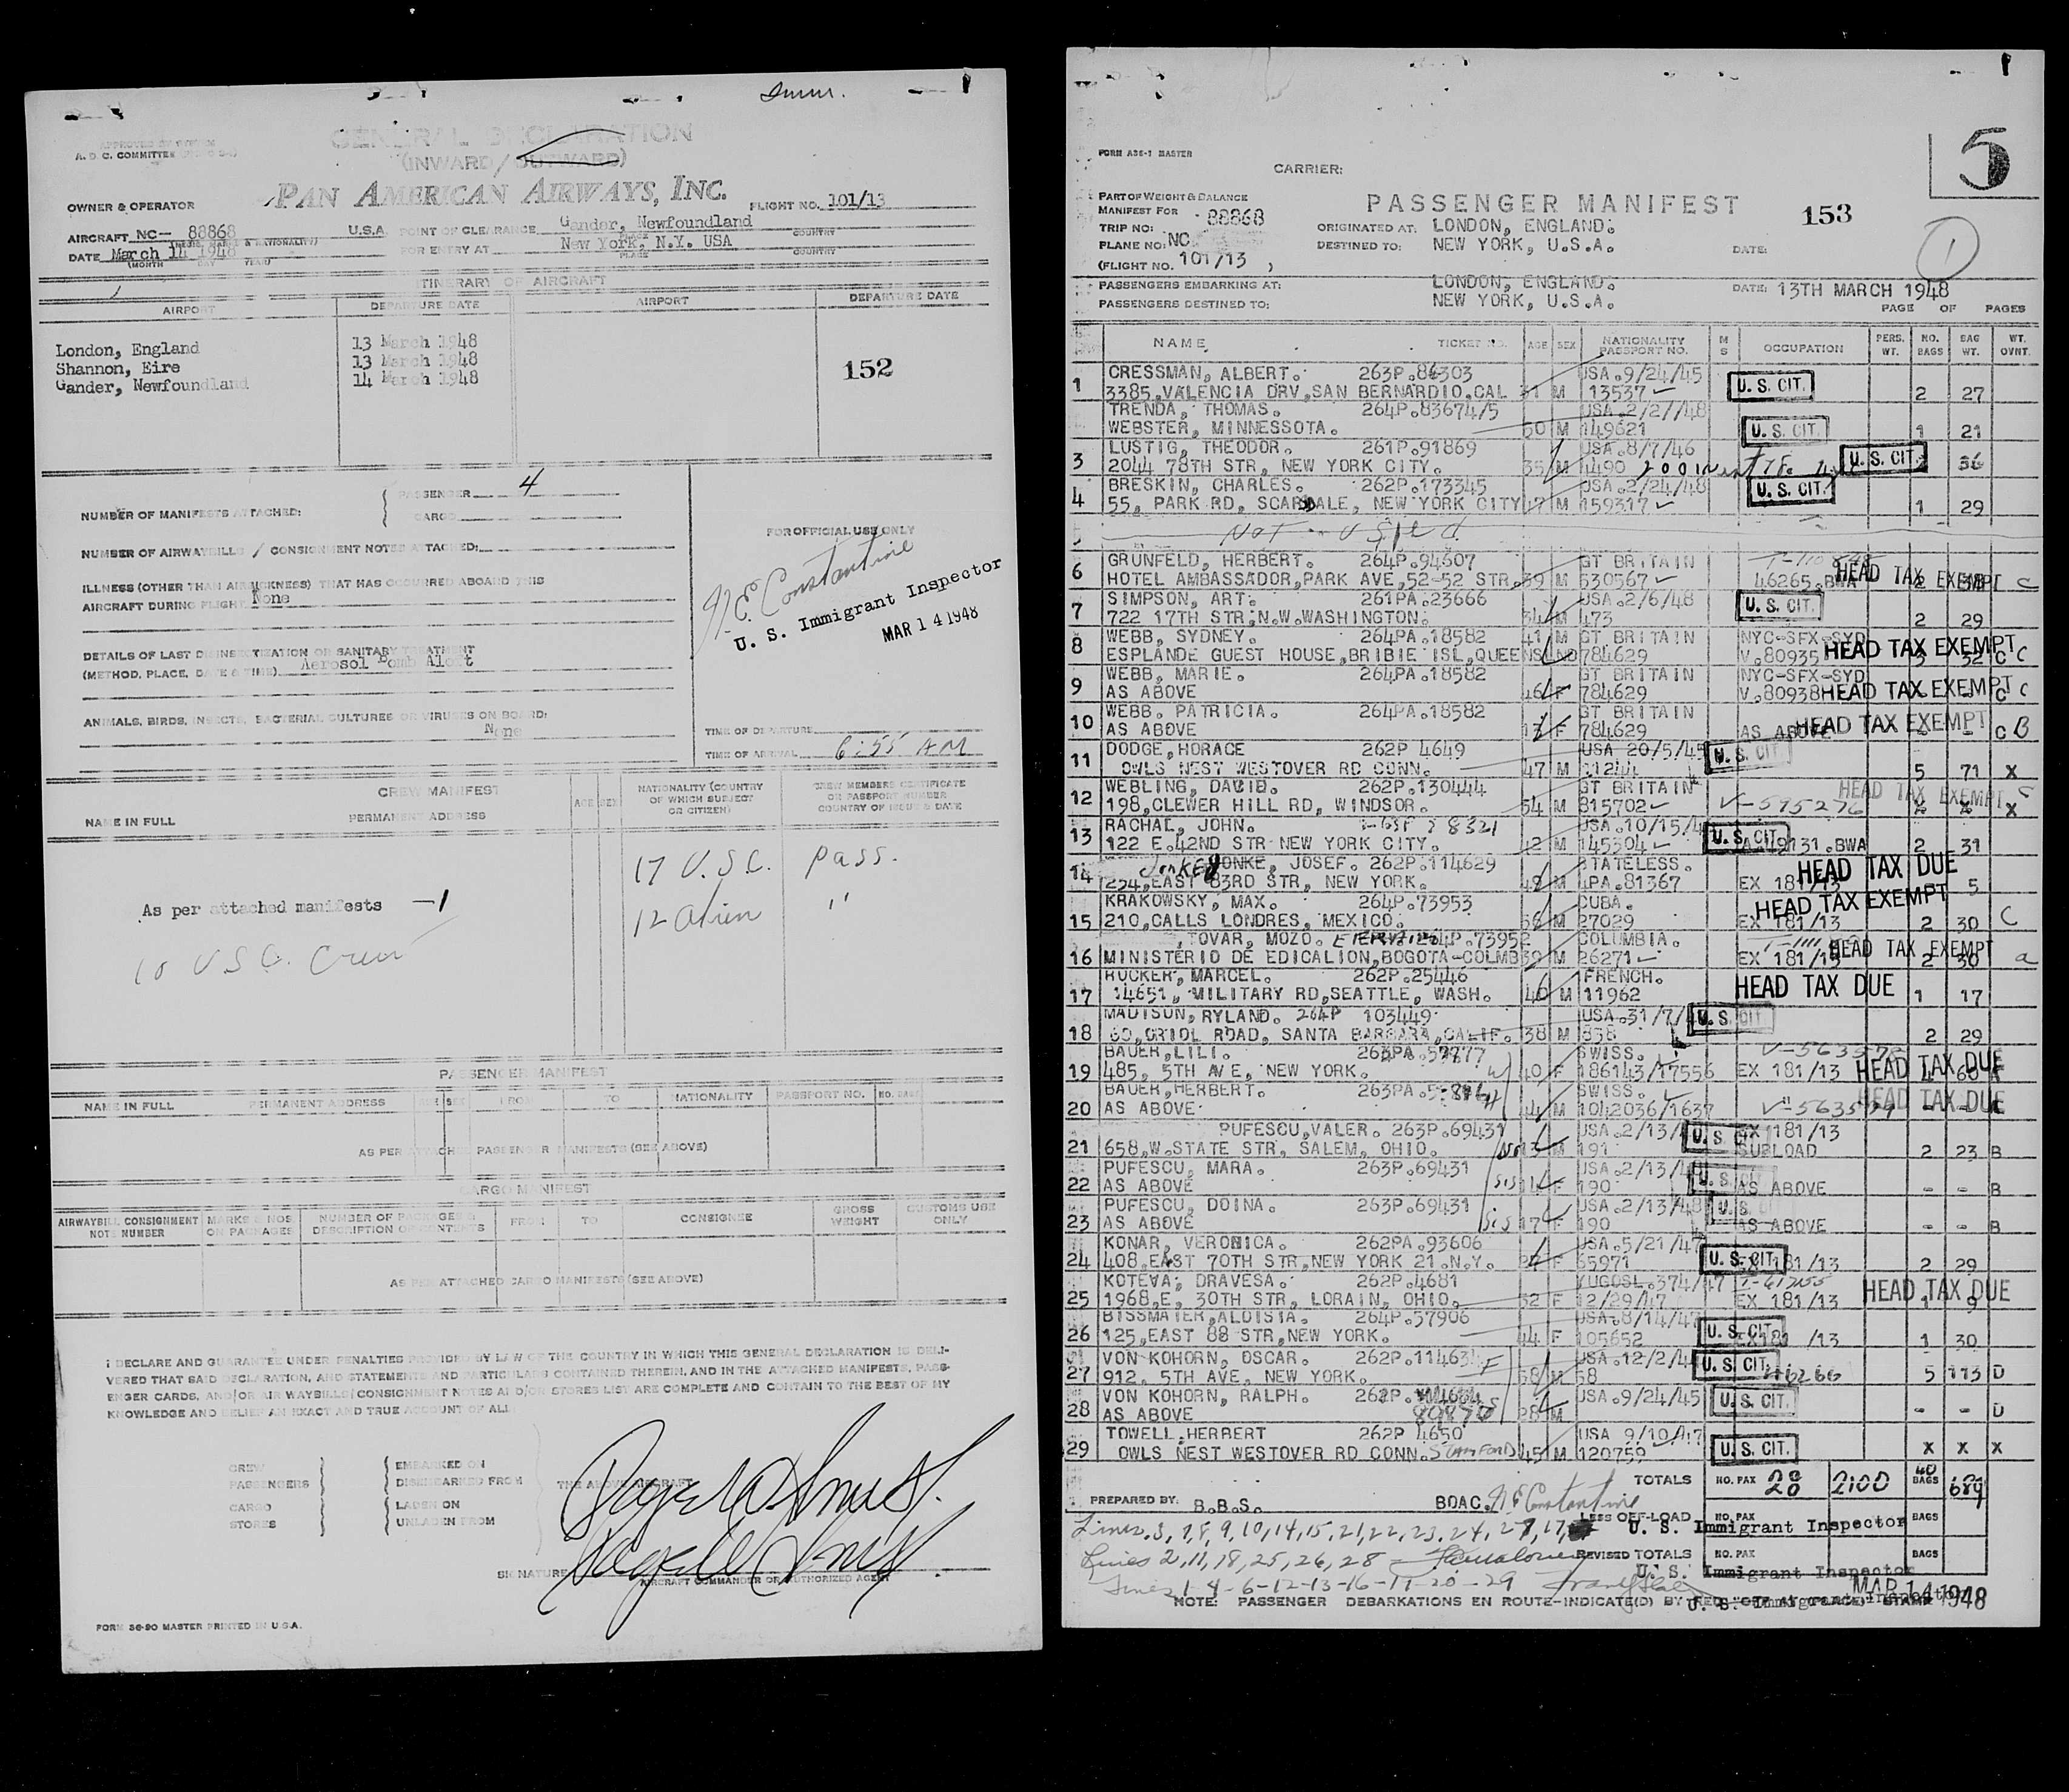 Imm.
APPROVED BY
A. D. C. COMMITTEE
GENERAL DECLARATION
(INWARD / OUTWARD)
OWNER & OPERATOR PAN AMERICAN AIRWAYS, INC. FLIGHT NO. 101/13
AIRCRAFT NC- 88868 U.S.A. POINT OF CLEARANCE Gander, Newfoundland
DATE March 14 1948 FOR ENTRY AT New York, N.Y. USA
(MONTH DAY YEAR) PLACE COUNTRY
ITINERARY OF AIRCRAFT
AIRPORT DEPARTURE DATE AIRPORT DEPARTURE DATE
London, England 13 March 1948
Shannon, Eire 13 March 1948
Gander, Newfoundland 14 March 1948
152
NUMBER OF MANIFESTS ATTACHED: PASSENGER 4
CARGO
NUMBER OF AIRWAYBILLS / CONSIGNMENT NOTES ATTACHED:
ILLNESS (OTHER THAN AIRSICKNESS) THAT HAS OCCURRED ABOARD THIS
AIRCRAFT DURING FLIGHT. None
DETAILS OF LAST DISINSECTIZATION OR SANITARY TREATMENT
(METHOD, PLACE, DATE & TIME) Aerosol Bomb Aloft
ANIMALS, BIRDS, INSECTS, BACTERIAL CULTURES OR VIRUSES ON BOARD:
None
FOR OFFICIAL USE ONLY
N.E. Constantine
U. S. Immigrant Inspector
MAR 14 1948
TIME OF DEPARTURE
TIME OF ARRIVAL 6:55 AM
CREW MANIFEST
NAME IN FULL PERMANENT ADDRESS AGE SEX NATIONALITY (COUNTRY OF WHICH SUBJECT OR CITIZEN) CREW MEMBERS CERTIFICATE OR PASSPORT NUMBER COUNTRY OF ISSUE & DATE
17 U.S.C. pass.
As per attached manifests -1
12 alien "
10 U.S.C. Crew
PASSENGER MANIFEST
NAME IN FULL PERMANENT ADDRESS AGE SEX FROM TO NATIONALITY PASSPORT NO. NO. BAGS
AS PER ATTACHED PASSENGER MANIFESTS (SEE ABOVE)
CARGO MANIFEST
AIRWAYBILL CONSIGNMENT NOTE NUMBER MARKS & NOS ON PACKAGES NUMBER OF PACKAGES & DESCRIPTION OF CONTENTS FROM TO CONSIGNEE GROSS WEIGHT CUSTOMS USE ONLY
AS PER ATTACHED CARGO MANIFESTS (SEE ABOVE)
I DECLARE AND GUARANTEE UNDER PENALTIES PROVIDED BY LAW OF THE COUNTRY IN WHICH THIS GENERAL DECLARATION IS DELI-
VERED THAT SAID DECLARATION, AND STATEMENTS AND PARTICULARS CONTAINED THEREIN, AND IN THE ATTACHED MANIFESTS, PASS-
ENGER CARDS, AND/OR AIR WAYBILLS / CONSIGNMENT NOTES AND/OR STORES LIST ARE COMPLETE AND CONTAIN TO THE BEST OF MY
KNOWLEDGE AND BELIEF AN EXACT AND TRUE ACCOUNT OF ALL
CREW EMBARKED ON
PASSENGERS DISEMBARKED FROM THE ABOVE AIRCRAFT
CARGO LADEN ON
STORES UNLADEN FROM
SIGNATURE
AIRCRAFT COMMANDER OR AUTHORIZED AGENT
FORM 36-90 MASTER PRINTED IN U.S.A.
FORM A36-1 MASTER
CARRIER:
5
PART OF WEIGHT & BALANCE
MANIFEST FOR PASSENGER MANIFEST 153
TRIP NO: 88868 ORIGINATED AT: LONDON, ENGLAND.
PLANE NO: NC DESTINED TO: NEW YORK, U.S.A. DATE: 1
(FLIGHT NO. 101/13 )
PASSENGERS EMBARKING AT: LONDON, ENGLAND. DATE: 13TH MARCH 1948
PASSENGERS DESTINED TO: NEW YORK, U.S.A. PAGE OF PAGES
NAME TICKET NO. AGE SEX NATIONALITY PASSPORT NO. M S OCCUPATION PERS. WT. NO. BAGS BAG WT. WT. OVNT.
CRESSMAN, ALBERT. 263P.86303 USA.9/24/45 U. S. CIT.
1 3385,VALENCIA DRV,SAN BERNARDIO.CAL 31 M 13537 2 27
TRENDA, THOMAS. 264P.83674/5 USA.2/27/48
WEBSTER, MINNESOTA. 50 M 149621 U. S. CIT. 1 21
LUSTIG, THEODOR. 261P.91869 USA.8/7/46
3 2044 78TH STR, NEW YORK CITY. 35 M 4490 U. S. CIT. 36
BRESKIN, CHARLES. 262P.173345 USA.2/24/48
4 55, PARK RD, SCARSDALE, NEW YORK CITY 47 M 159317 U. S. CIT. 1 29
5 Not Used
GRUNFELD, HERBERT. 264P.94607 GT BRITAIN
6 HOTEL AMBASSADOR,PARK AVE,52-52 STR. 39 M 530567 46265.BWA HEAD TAX EXEMPT 2 C
SIMPSON, ART. 261PA.23666 USA.2/6/48
7 722 17TH STR.N.W.WASHINGTON. 34 M 473 U. S. CIT. 2 29
WEBB, SYDNEY. 264PA.18582 41 M GT BRITAIN NYC-SFX-SYD
8 ESPLANDE GUEST HOUSE,BRIBIE ISL,QUEENSLND 784629 V.80935 HEAD TAX EXEMPT 32 C C
WEBB, MARIE. 264PA.18582 GT BRITAIN NYC-SFX-SYD
9 AS ABOVE 46 F 784629 V.80938 HEAD TAX EXEMPT C C
WEBB. PATRICIA. 264PA.18582 GT BRITAIN
10 AS ABOVE 13 F 784629 AS ABOVE HEAD TAX EXEMPT - C B
DODGE,HORACE 262P 4649 USA 20/5/45
11 OWLS NEST WESTOVER RD CONN. 47 M U. S. CIT. 5 71 X
WEBLING, DAVID. 262P.130444 GT BRITAIN
12 198,CLEWER HILL RD, WINDSOR. 54 M 815702 V-595276 HEAD TAX EXEMPT X X X C
RACHAL, JOHN. 8321 USA.10/15/4
13 122 E.42ND STR NEW YORK CITY. 42 M 145304 U. S. CIT. 131.BWA 2 31
Jonkey JONKE, JOSEF. 262P.114629 STATELESS.
14 234,EAST 83RD STR, NEW YORK. 49 M 4PA.81367 EX 181/13 HEAD TAX DUE 5
KRAKOWSKY, MAX. 264P.73953 CUBA.
15 210,CALLS LONDRES, MEXICO. 56 M 27029 EX 181/13 HEAD TAX EXEMPT 2 30 C
,TOVAR, MOZO. 264P.73952 COLUMBIA.
16 MINISTERIO DE EDICALION,BOGOTA-COLMB 39 M 26271 EX 181/13 HEAD TAX EXEMPT 2 30 a
RUCKER, MARCEL. 262P.25446 FRENCH.
17 14651, MILITARY RD,SEATTLE, WASH. 40 M 11962 HEAD TAX DUE 1 17
MADISON, RYLAND. 264P 103449 USA.31/7/
18 60,ORIOL ROAD, SANTA BARBARA,CALIF. 38 M 838 U. S. CIT 2 29
BAUER,LILI. 263PA. SWISS. V-563578
19 485, 5TH AVE, NEW YORK. W 40 F 186143/17556 EX 181/13 HEAD TAX DUE
BAUER,HERBERT. 263PA. SWISS.
20 AS ABOVE H 44 M 1042036/1637 V-563579 HEAD TAX DUE
PUFESCU,VALER. 263P.69431 USA.2/13/4 EX 181/13
21 658,W.STATE STR, SALEM, OHIO. 13 M 191 U. S. CIT SUBLOAD 2 23 B
PUFESCU, MARA. 263P.69431 USA.2/13/4
22 AS ABOVE sis F 190 U. S. CIT AS ABOVE - - B
PUFESCU, DOINA. 263P.69431 USA.2/13/48
23 AS ABOVE sis 17 F 190 U. S. AS ABOVE - - B
KONAR, VERONICA. 262PA.93606 USA.5/21/47
24 408,EAST 70TH STR,NEW YORK 21.N.Y. 2 F 65971 U. S. CIT. EX 181/13 2 29
KOTEVA, DRAVESA. 262P.4681 YUGOSL.374/47
25 1968,E, 30TH STR, LORAIN, OHIO. 52 F 12/29/47 EX 181/13 HEAD TAX DUE 1 9
BISSMAIER,ALOISIA. 264P.57906 USA.8/14/47
26 125,EAST 88 STR,NEW YORK. 44 F 105652 U. S. CIT. /13 1 30
VON KOHORN, OSCAR. 262P.11463 F USA.12/2/4
27 912, 5TH AVE, NEW YORK. 68 M 58 U. S. CIT. 5 113 D
VON KOHORN, RALPH. 262P. USA.9/24/45
28 AS ABOVE 28 M U. S. CIT. - - D
TOWELL.HERBERT 262P 4650 USA 9/10/47
29 OWLS NEST WESTOVER RD CONN. STAMFORD 45 M 120759 U. S. CIT. X X X
TOTALS NO. PAX 28 2100 40 BAGS 689
PREPARED BY. B.B.S. BOAC. N E Constantine
LESS OFF-LOAD NO. PAX BAGS
Lines 3, 7, 8, 9, 10, 14, 15, 21, 22, 23, 24, 27, 17, U. S. Immigrant Inspector
Lines 2, 11, 18, 25, 26, 28 REVISED TOTALS NO. PAX BAGS
U. S. Immigrant Inspector
Lines 1-4-6-12-13-16-19-20-29 MAR 14 1948
NOTE: PASSENGER DEBARKATIONS EN ROUTE-INDICATE(D) BY
U. S. Immigrant Inspector